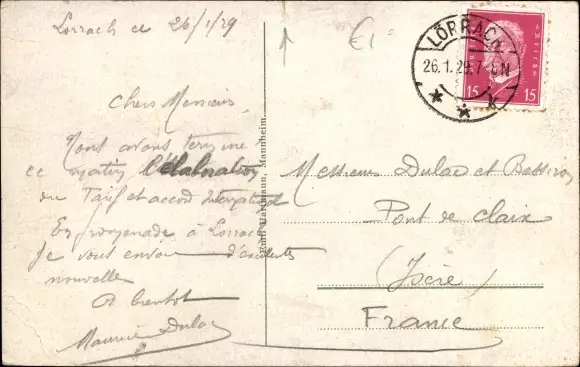 Lorrach ce 26/1/29
Chers Messieurs
Nous avons terminé
ce matin l'élaboration
du Tarif et accord International
En promenade à Lorrach
Je vous envoie d'excellents
nouvelle
A bientot
Maurice Dulac
Emil Hartmann, Mannheim.
€1-
LÖRRACH
26.1.29.7-8N
k
15 15
Messieurs Dulac et
Pont de Claix
(Isère)
France